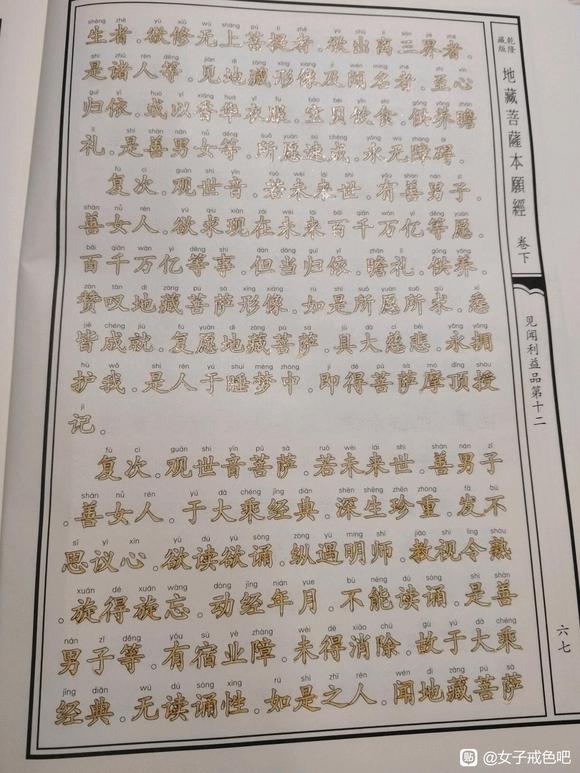 生者。欲修无上菩提者。欲出离三界者。
是诸人等。见地藏形像及闻名者。至心
归依。或以香华衣服。宝贝饮食。供养瞻
礼。是善男女等。所愿速成。永无障碍。
复次。观世音。若未来世。有善男子。
善女人。欲求现在未来百千万亿等愿。
百千万亿等事。但当归依。瞻礼。供养。
赞叹地藏菩萨形像。如是所愿所求。悉
皆成就。复愿地藏菩萨。具大慈悲。永拥
护我。是人于睡梦中。即得菩萨摩顶授
记。
复次。观世音菩萨。若未来世。善男子
。善女人。于大乘经典。深生珍重。发不
思议心。欲读欲诵。纵遇明师。教视令熟
。旋得旋忘。动经年月。不能读诵。是善
男子等。有宿业障。未得消除。故于大乘
经典。无读诵性。如是之人。闻地藏菩萨
乾隆藏版
地藏菩薩本願經
卷下
见闻利益品第十二
六七
贴 @女子戒色吧